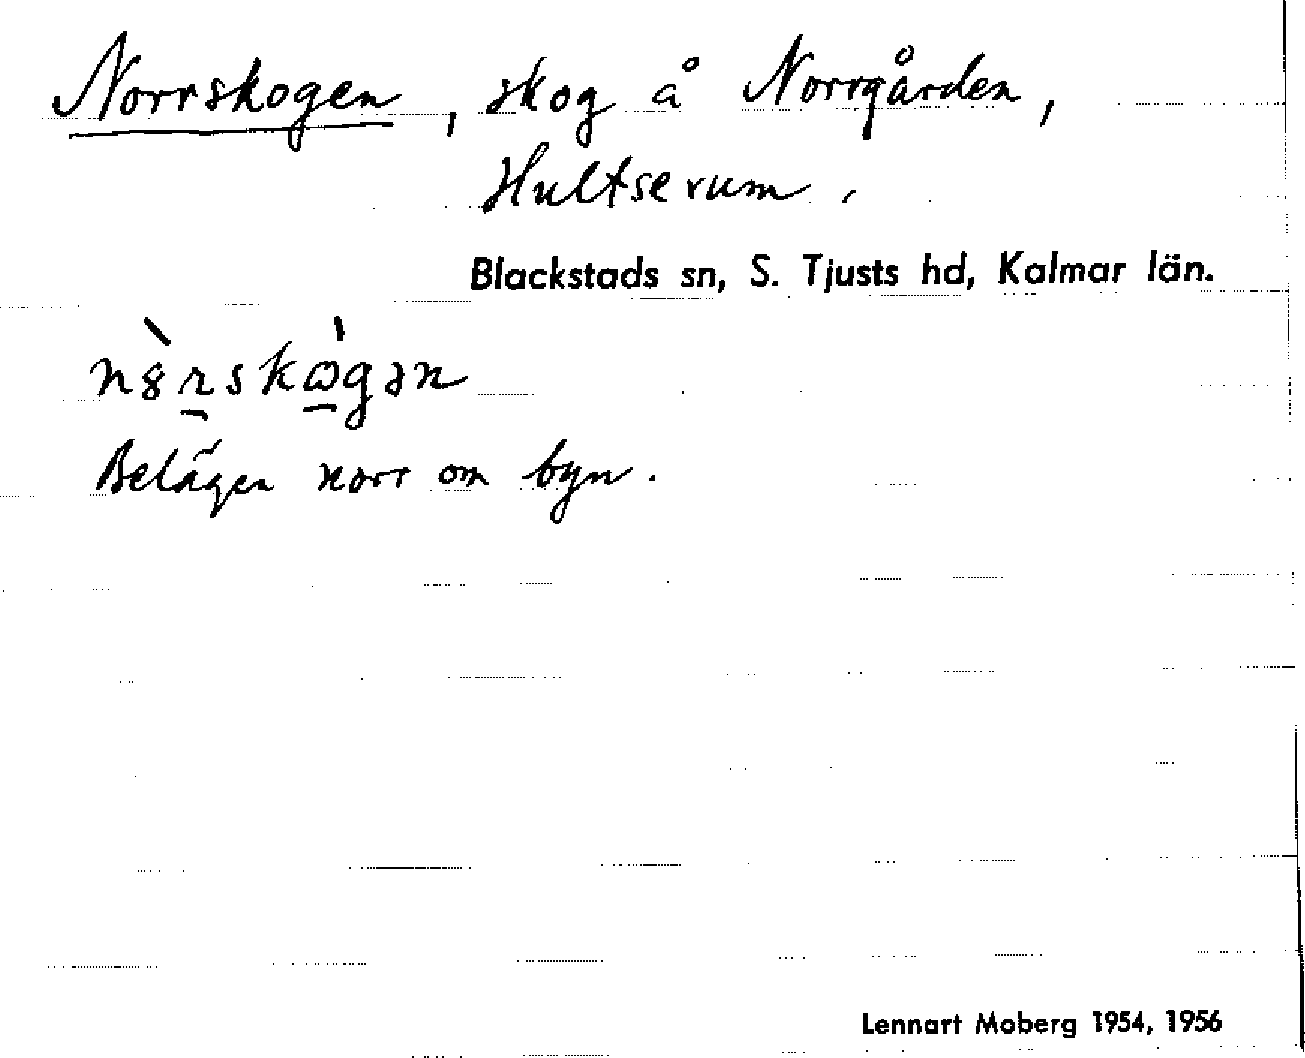 Norrskogen, skog å Norrgården,
Hultserum.
Blackstads sn, S. Tjusts hd, Kalmar län.
Belägen norr om byn.
Lennart Moberg 1954, 1956